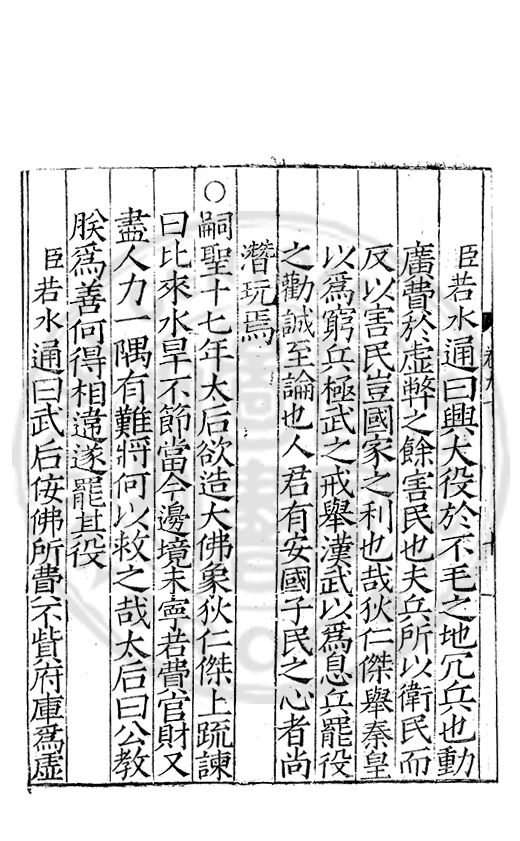 臣若水通曰興大役於不毛之地冗兵也動
廣費於虛弊之餘害民也夫兵所以衛民而
反以害民豈國家之利也哉狄仁傑舉秦皇
以爲窮兵極武之戒舉漢武以爲息兵罷役
之勸誠至論也人君有安國子民之心者尚
潛玩焉
○嗣聖十七年太后欲造大佛象狄仁傑上疏諫
曰比來水旱不節當今邊境未寧若費官財又
盡人力一隅有難將何以救之哉太后曰公教
朕爲善何得相違遂罷其役
臣若水通曰武后佞佛所費不貲府庫爲虛